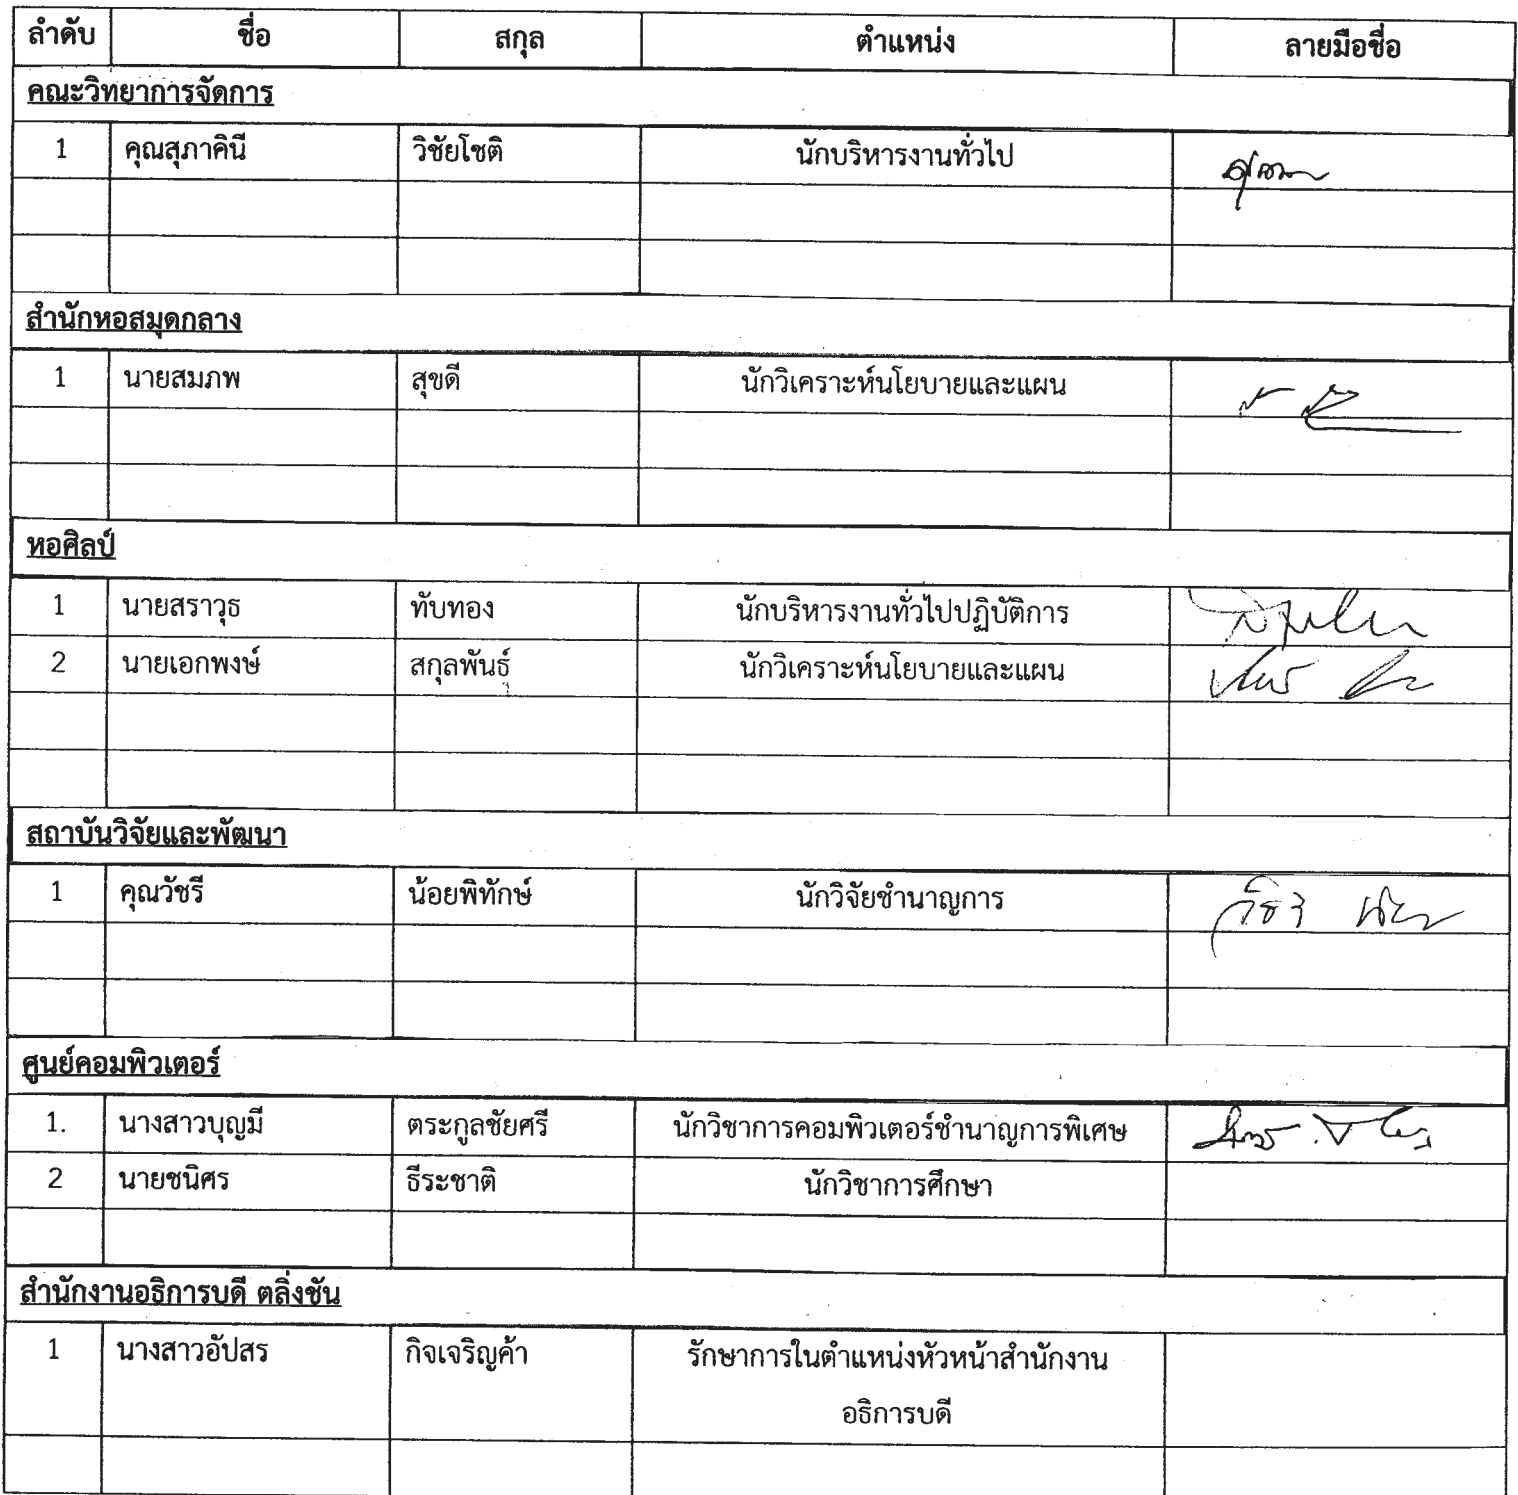 ลำดับ ชื่อ สกุล ตำแหน่ง ลายมือชื่อ
คณะวิทยาการจัดการ
1 คุณสุภาคินี วิชัยโชติ นักบริหารงานทั่วไป
สำนักหอสมุดกลาง
1 นายสมภพ สุขดี นักวิเคราะห์นโยบายและแผน
หอศิลป์
1 นายสราวุธ ทับทอง นักบริหารงานทั่วไปปฏิบัติการ
2 นายเอกพงษ์ สกุลพันธุ์ นักวิเคราะห์นโยบายและแผน
สถาบันวิจัยและพัฒนา
1 คุณวัชรี น้อยพิทักษ์ นักวิจัยชำนาญการ
ศูนย์คอมพิวเตอร์
1. นางสาวบุญมี ตระกูลชัยศรี นักวิชาการคอมพิวเตอร์ชำนาญการพิเศษ
2 นายชนิศร ธีระชาติ นักวิชาการศึกษา
สำนักงานอธิการบดี ตลิ่งชัน
1 นางสาวอัปสร กิจเจริญค้า รักษาการในตำแหน่งหัวหน้าสำนักงาน
อธิการบดี